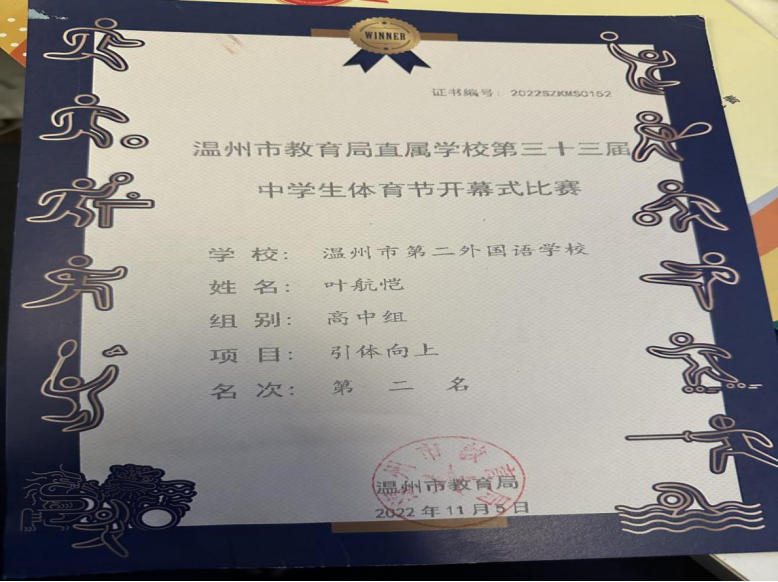 WINNER
证书编号：2022SZKMS0152
温州市教育局直属学校第三十三届
中学生体育节开幕式比赛
学 校：温州市第二外国语学校
姓 名：叶航恺
组 别：高中组
项 目：引体向上
名 次：第 二 名
温州市教育局
2022 年 11 月 5 日